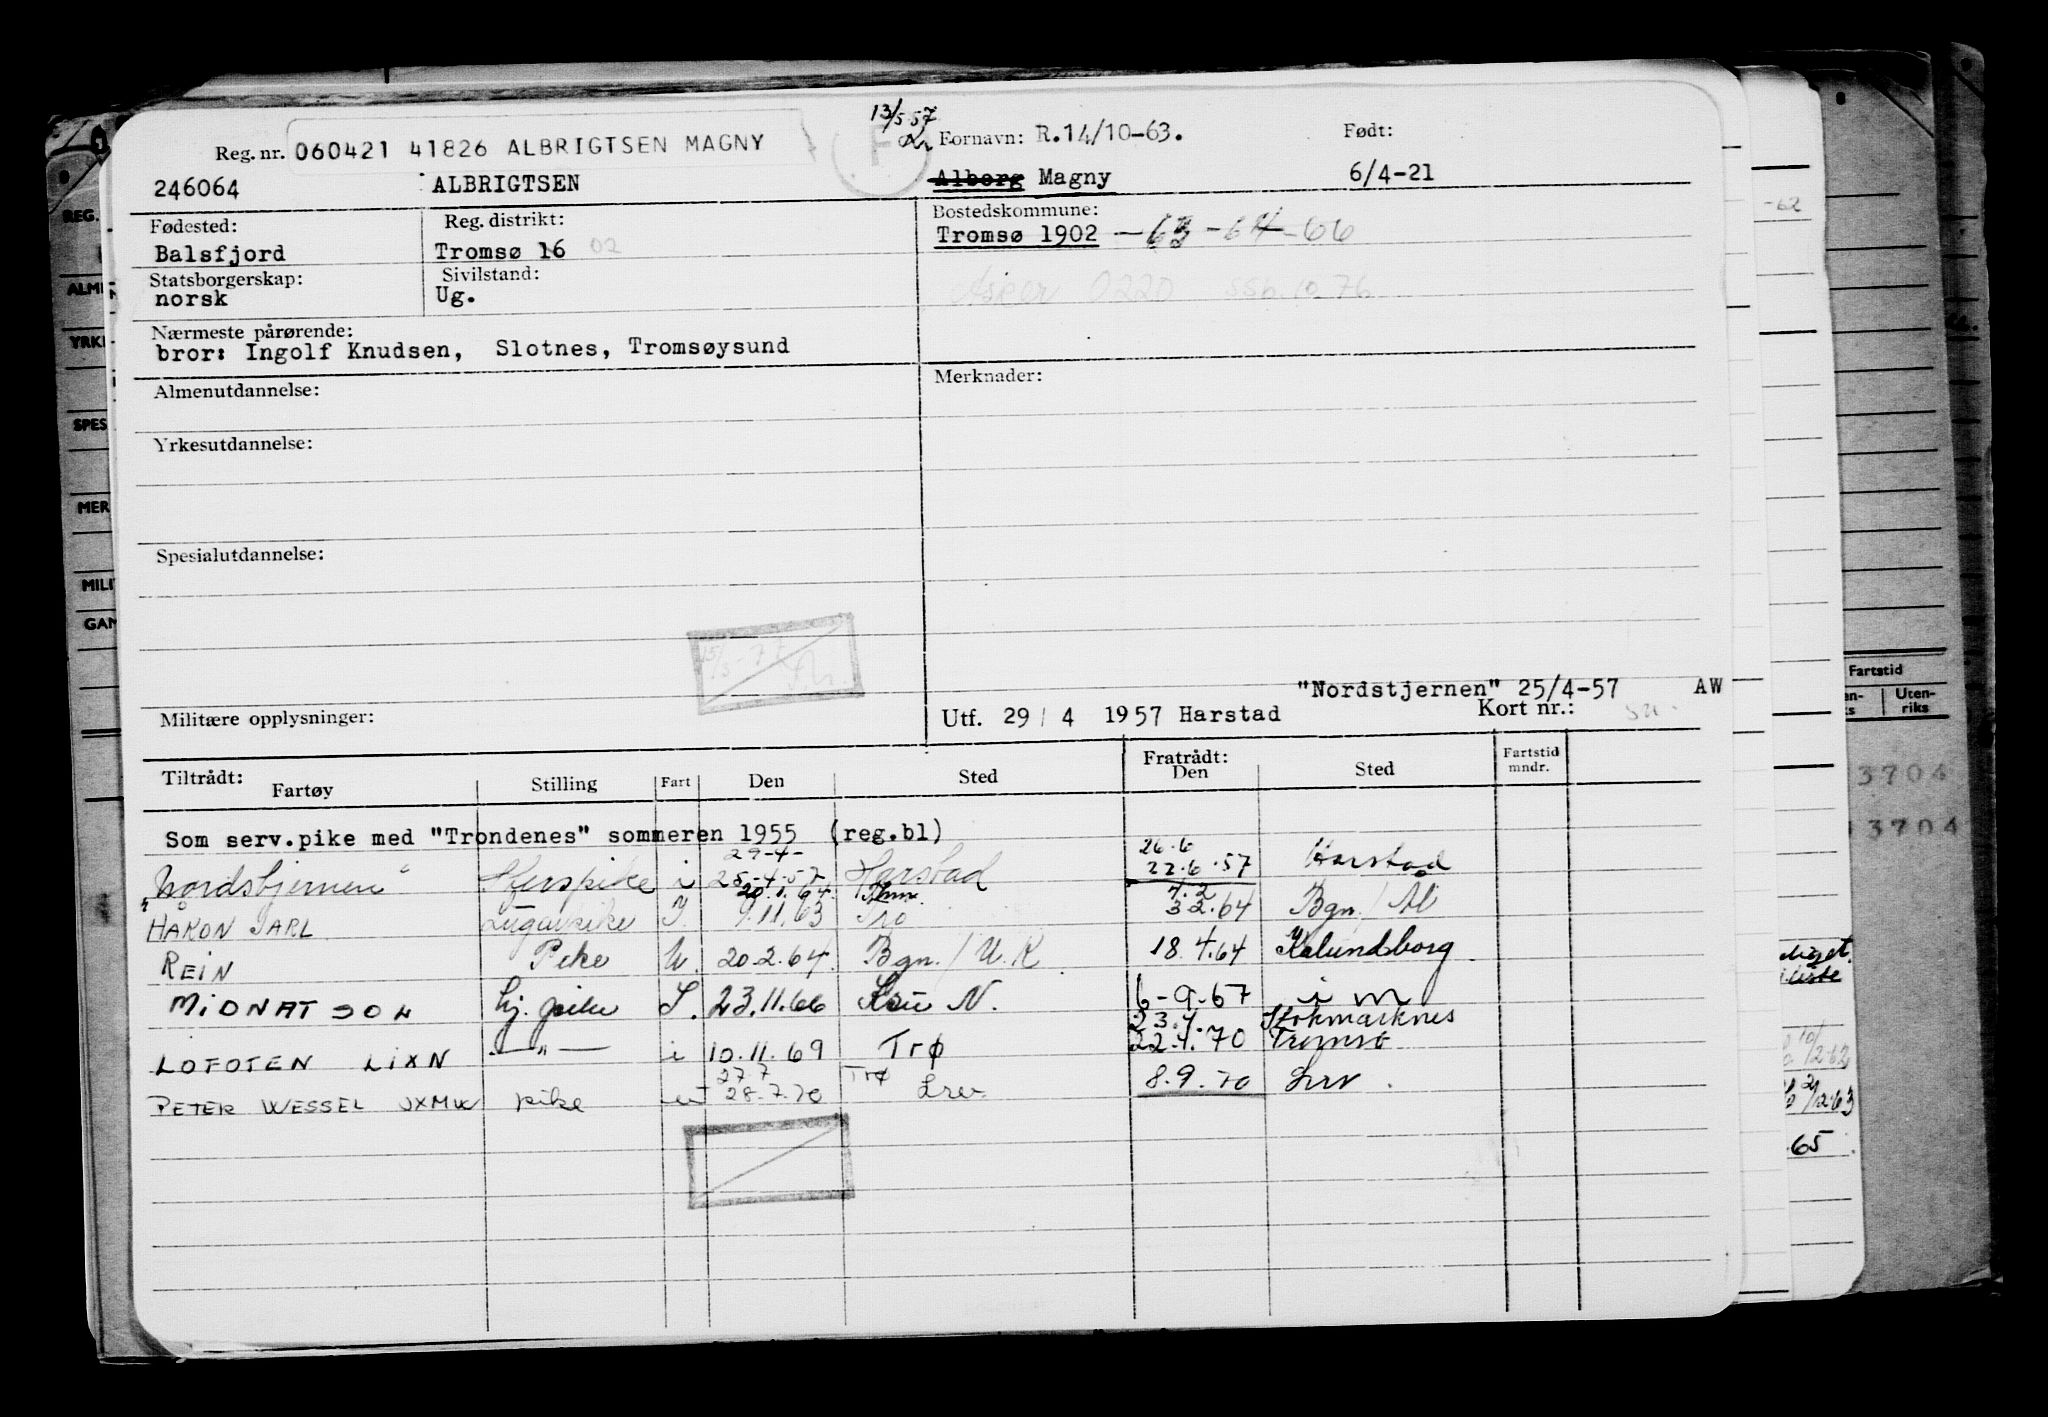 13/5 57
Reg. nr. 060421 41826 ALBRIGTSEN MAGNY F Fornavn: R.14/10-63. Født:
246064 ALBRIGTSEN Alborg Magny 6/4-21
Fødested: Reg. distrikt: Bostedskommune:
Balsfjord Tromsø 16 02 Tromsø 1902 - 63 - 64 - 66
Statsborgerskap: Sivilstand:
norsk Ug. Asker 0220 ssb. 10.76
Nærmeste pårørende:
bror: Ingolf Knudsen, Slotnes, Tromsøysund
Almenutdannelse: Merknader:
Yrkesutdannelse:
Spesialutdannelse:
15/5-77
"Nordstjernen" 25/4-57 AW
Militære opplysninger: Utf. 29 / 4 1957 Harstad Kort nr.:
Tiltrådt: Fratrådt: Fartstid
Fartøy Stilling Fart Den Sted Den Sted mndr.
Som serv.pike med "Trondenes" sommeren 1955 (reg.bl)
29-4- 26.6
"Nordstjernen" i 25-4-57 Harstad 22.6.57 Harstad
20.1.64 7.2
HÅKON JARL Lugarpike I. 9.11.63 Tro 3 2.64 Bgn. / Ål
REIN Pike U. 20.2.64. Bgn. / U.K. 18.4.64 Kalundborg
MIDNAT SOL hj. pike I. 23.11.66 Ksu N. 6-9-67 i m
23.4. Stokmarknes
LOFOTEN LIXN —"— i 10.11.69 Trø 22.4.70 Tromsø
27.7 Trø
PETER WESSEL JXMW pike u 28.7.70 Lrv. 8.9.70 Lrv.
REG.
ALM
YRK
SPES
MER
MILI
GAM
Fartstid
Uten-
riks
3704
3704
-62
65